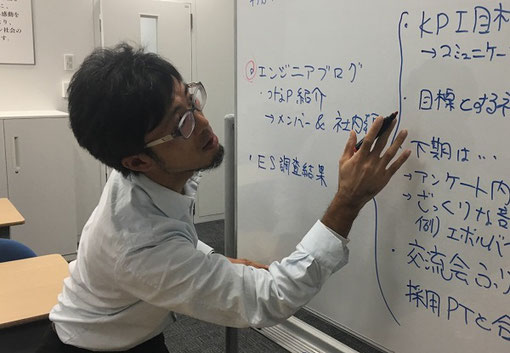 感動を
ン社会の
◎エンジニアブログ
・つなP紹介
→メンバー & 社内
・ES調査結果
・KPI目標
→コミュニケー
・目標とする
下期は…
→アンケート内
→ざっくりな
例) エボルバ
・交流会
採用PTと合